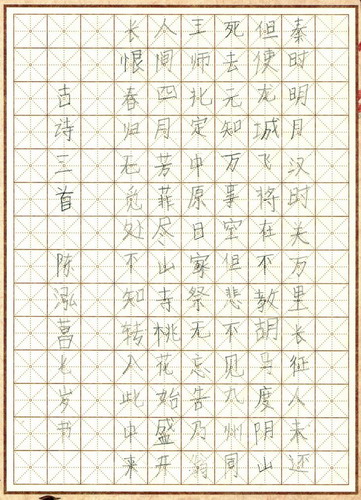 秦时明月汉时关万里长征人未还
但使龙城飞将在不教胡马度阴山
死去元知万事空但悲不见九州同
王师北定中原日家祭无忘告乃翁
人间四月芳菲尽山寺桃花始盛开
长恨春归无觅处不知转入此中来
古诗三首 陈泓菖七岁书